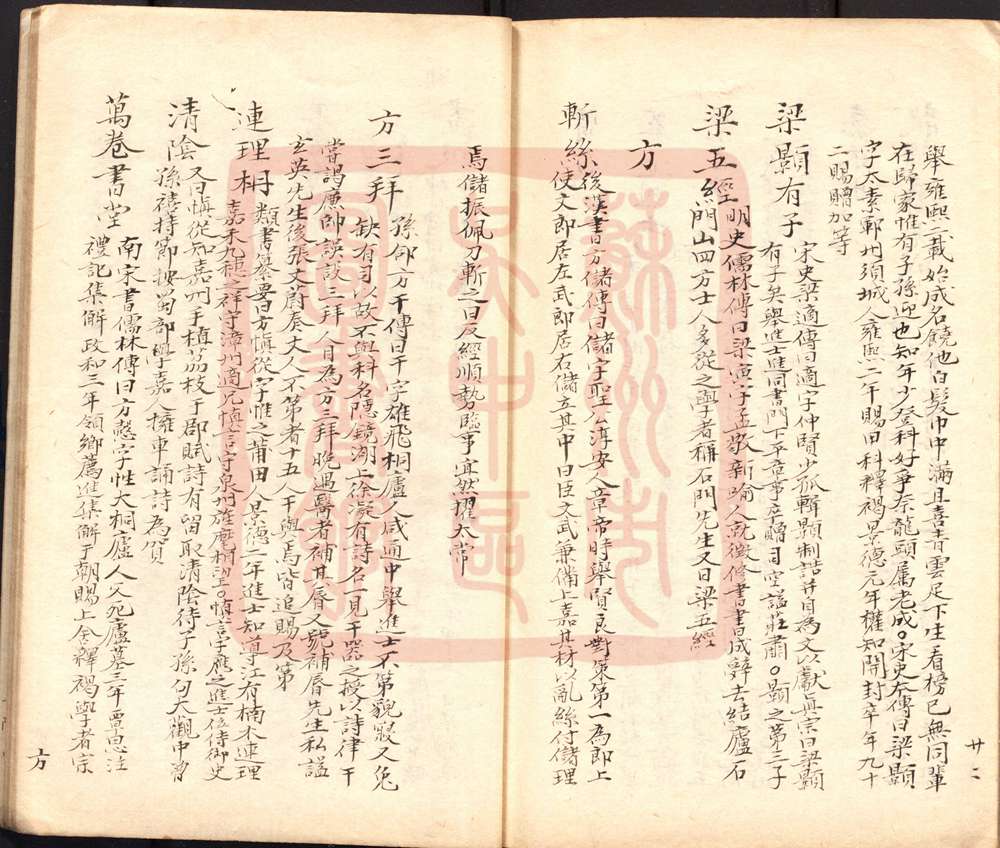 舉雍熙二載始成名饒他白髮巾中滿且喜青雲足下生看榜已無同輩
在歸家惟有子孫迎也知年少登科好爭奈龍頭屬老成○宋史本傳曰梁顥
字太素鄆州須城人雍熙二年賜甲科釋褐景德元年權知開封卒年九十
二賜贈加等
梁顥有子
宋史梁適傳曰適字仲賢少孤輯顥制誥并自為文以獻真宗曰梁顥
有子矣舉進士進同書門下平章事卒贈司空諡莊肅○顥之第三子
梁五經
明史儒林傳曰梁寅字孟敬新喻人就徵修書書成辭去結廬石
門山四方士人多從之學者稱石門先生又曰梁五經
方
斬絲
後漢書方儲傳曰儲字聖公丹安人章帝時舉賢良對策第一為郎上
使文郎居左武郎居右儲立其中曰臣文武兼備上嘉其材以亂絲付儲理
焉儲振佩刀斬之曰反經順勢臨事宜然擢太常
方三拜
孫郃方干傳曰干字雄飛桐廬人咸通中舉進士不第貌寢又兔
缺有司以故不與科名隱鏡湖上徐凝有詩名一見干器之授以詩律干
嘗謁廉帥誤設三拜人目為方三拜晚遇醫者補其唇又號補唇先生私諡
玄英先生後張文蔚奏文人不第者十五人干與焉皆追賜及第
連理桐
類書纂要曰方慎從字惟之莆田人景德二年進士知導江有楠木連理
嘉禾九穗之祥守漳州適兄慎言守泉州旌麾相望○慎言字應之進士侍御史
清陰
又曰慎從知嘉州手植荔枝于郡賦詩有留取清陰待子孫句大觀中曾
孫禧持節按蜀部學嘉人擁車誦詩為賀
萬卷書堂
南宋書儒林傳曰方愨字性夫桐廬人父死廬墓三年覃思注
禮記集解政和三年領鄉薦進集解于朝賜上舍釋褐學者宗
方
廿二